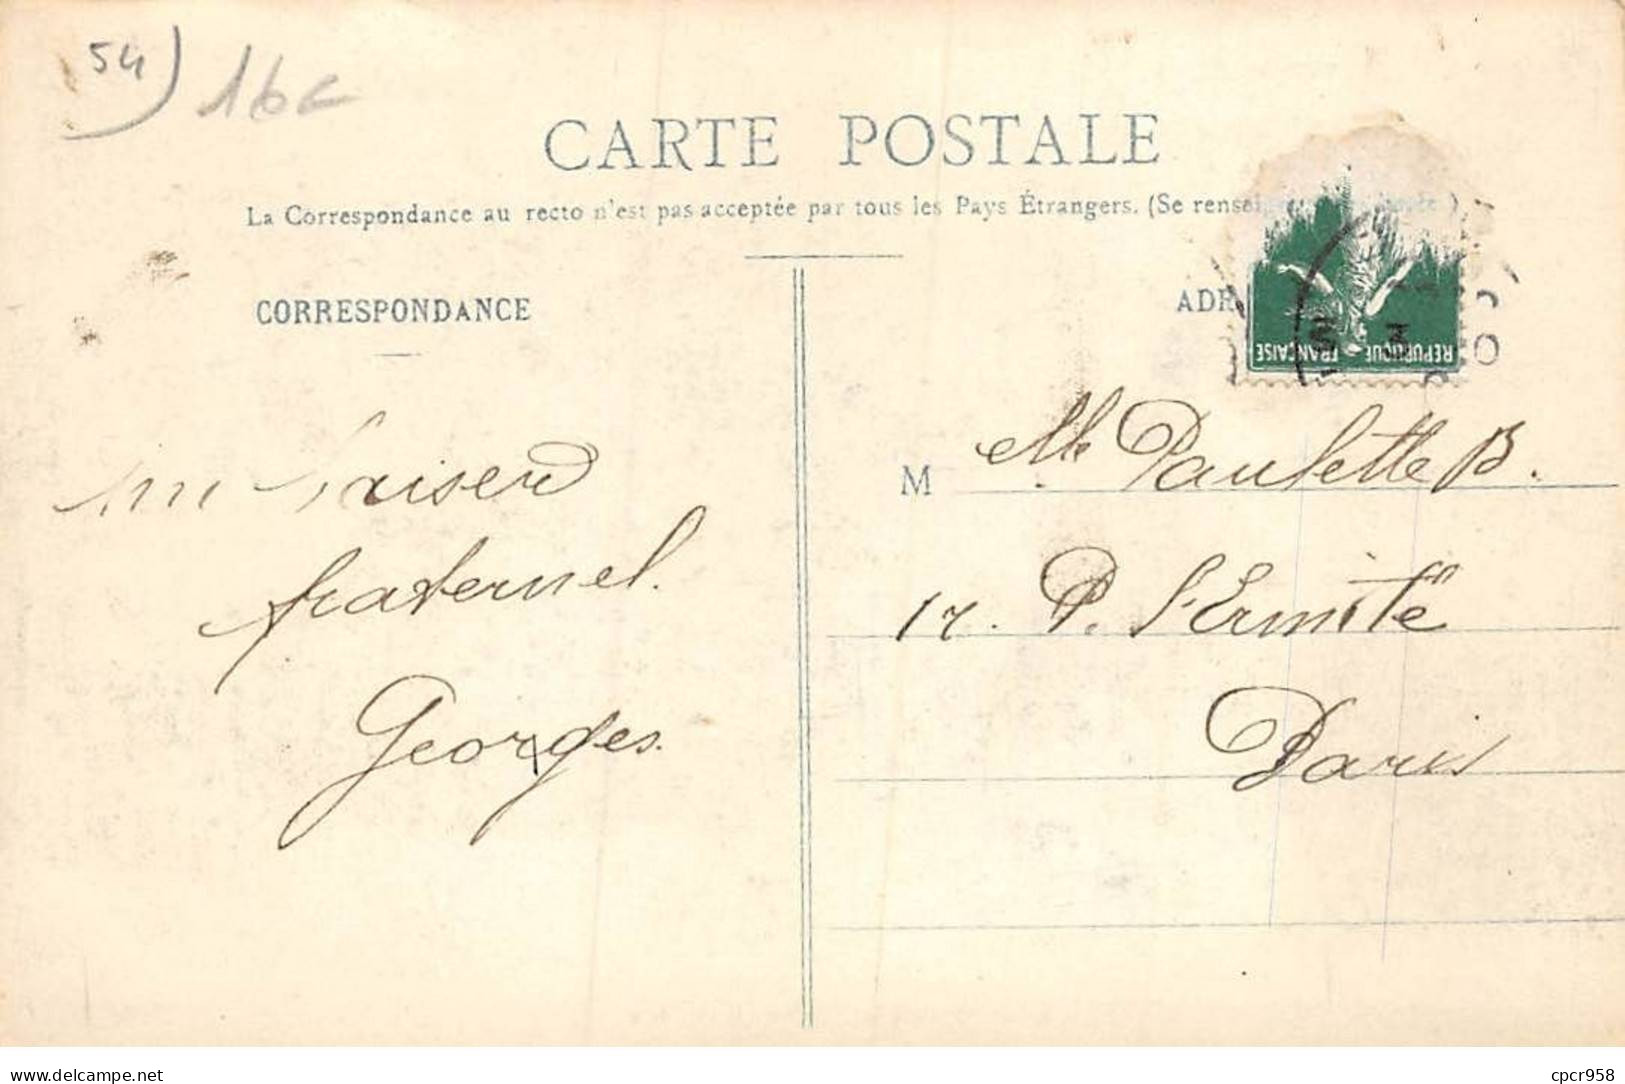 54) 16c
CARTE POSTALE
La Correspondance au recto n'est pas acceptée par tous les Pays Étrangers. (Se rense
CORRESPONDANCE
ADR
REPUBLIQUE FRANÇAISE
un baiser
fraternel.
Georges.
M elle Paulette B.
17. P. l'Ermite
Paris
delcampe.net
cpcr958